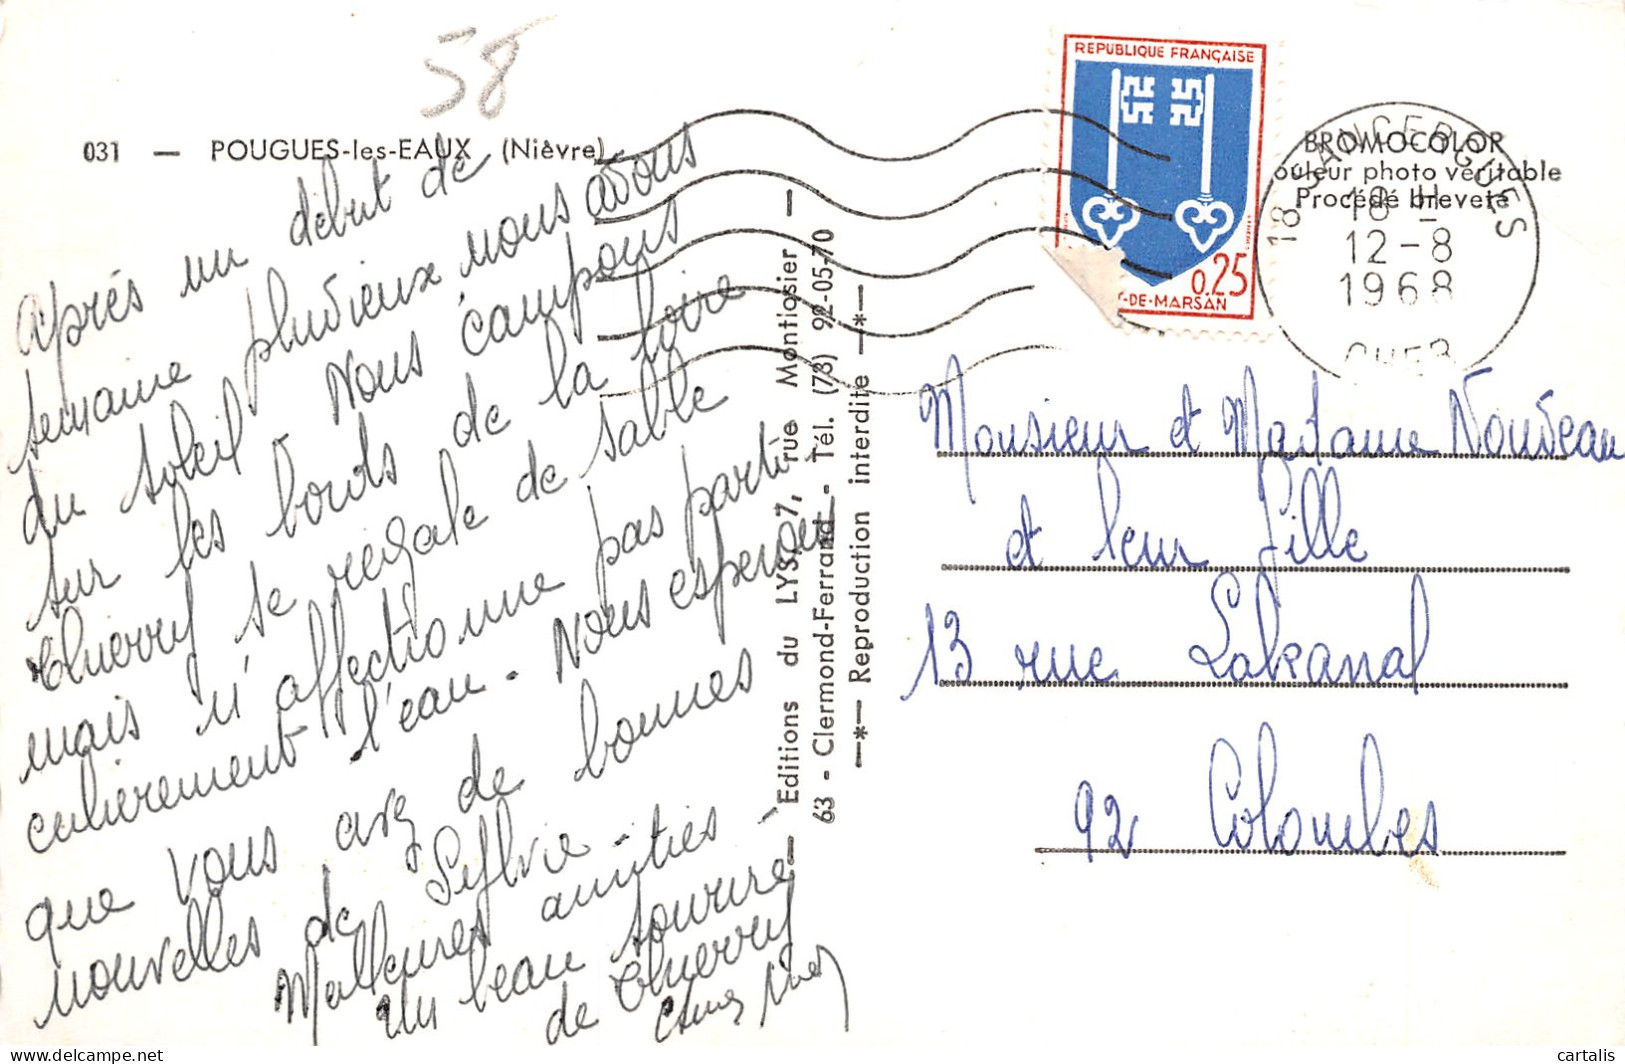 58
031 — POUGUES-les-EAUX (Nièvre)
Après un début de
semaine pluvieux nous avons
du soleil Nous campons
sur les bords de la loire
Thierry se regale de sable
mais n'affectionne pas parti
culierement l'eau. Nous esperons
que vous avez de bonnes
nouvelles de Sylvie -
Meilleures amitiés -
Un beau sourire
de Thierry
— Editions du LYS, 7, rue Montlosier —
63 - Clermond-Ferrand - Tél. (73) 92-05-70
—*— Reproduction interdite —*—
REPUBLIQUE FRANÇAISE
0,25
T-DE-MARSAN
18 SANCERGUES
18 H
12-8
1968
CHER
BROMOCOLOR
ouleur photo véritable
Procédé breveté
Monsieur et Madame Nouveau
et leur fille
13 rue Lakanal
92 Colombes
delcampe.net
cartalis